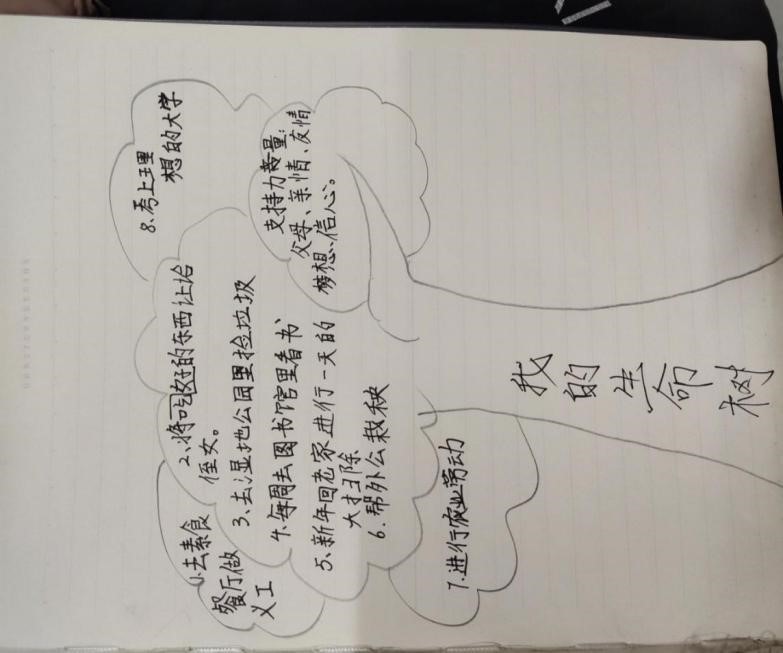 8.考上理
想的大学
支持力量:
父母、亲情、友情
梦想、信心。
2、将吃好的东西让给
侄女。
3、去湿地公园里捡垃圾
4、每周去图书馆里看书
5、新年回老家进行一天的
大扫除
6、帮外公栽秧
1、去素食
餐厅做
义工
7.进行农业劳动
我
的
生
命
树